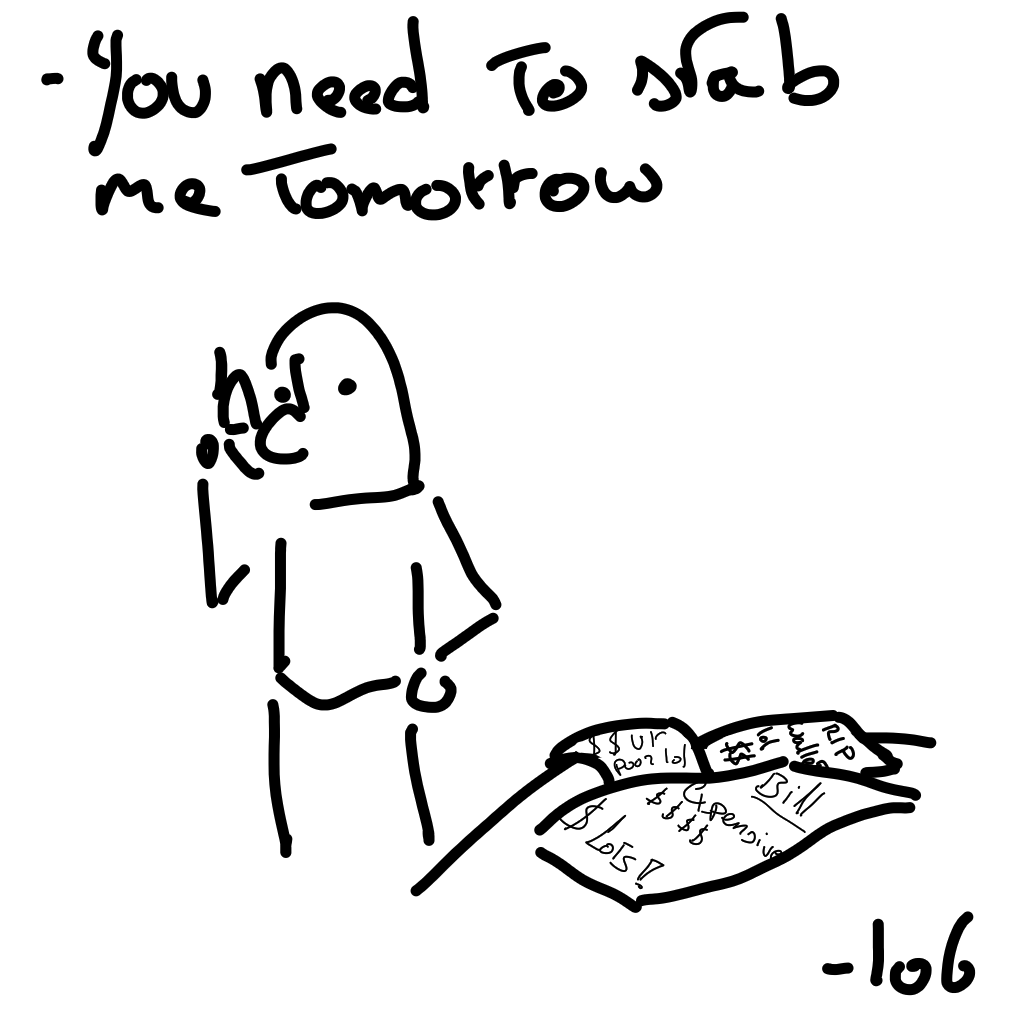 - You need To stab
me Tomorrow
$$ ur
poor lol
RIP
wallet
lol
$$
Bill
Expensive
$$$$
$ Lots!
-lob